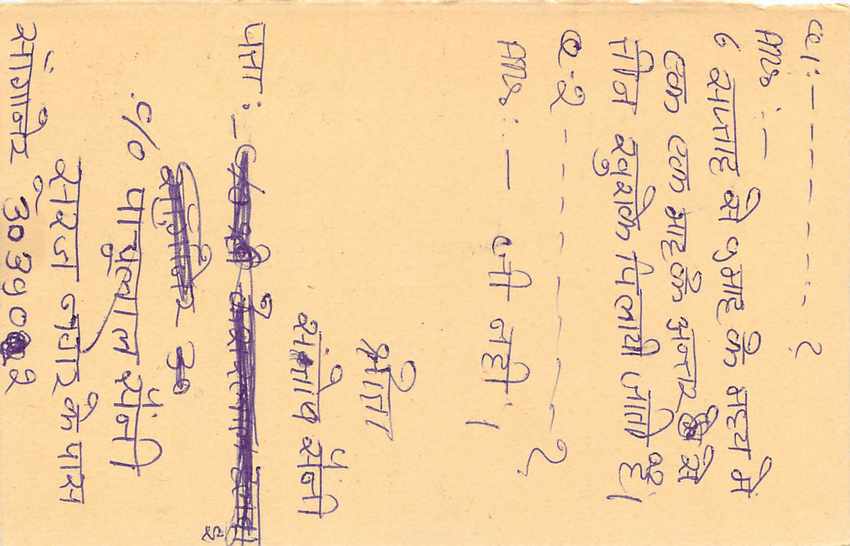 Q1:- - - - - - - - ?
Ans:-
6 सप्ताह से 9 माह के मध्य में
एक एक माह के अन्तर से
तीन खुराके पिलायी जाती है।
Q:2 - - - - - - - - ?
Ans:- जी नही।
श्रोता
संतोष सैनी
पता:-
C/o पाचूलाल सैनी
सूरज नगर के पास
सांगानेर 303902